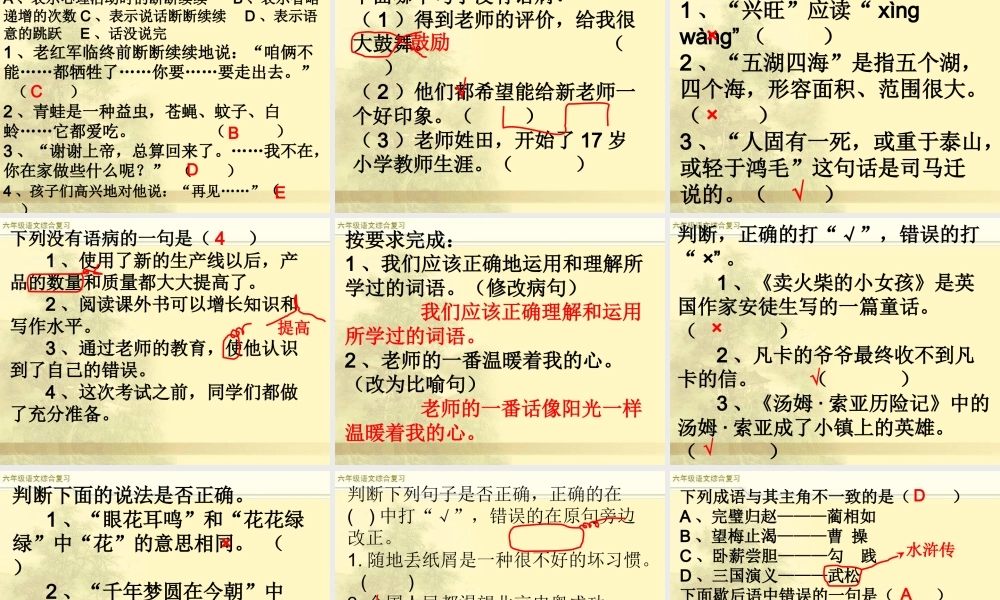 递增的次数 C 、表示说话断断续续　D 、表示语
意的跳跃　E 、话没说完
1 、老红军临终前断断续续地说：“咱俩不
能……都牺牲了……你要……要走出去。”
（ C ）
2 、青蛙是一种益虫，苍蝇、蚊子、白
蛉……它都爱吃。（ B ）
3 、“谢谢上帝，总算回来了。……我不在，
你在家做些什么呢？”（ D ）
4 、孩子们高兴地对他说：“再见……”（ E
）
（ 1 ）得到老师的评价，给我很
大鼓舞 鼓励（
）
（ 2 ）他们都希望能给新老师一
个好印象。（ √ ）
（ 3 ）老师姓田，开始了 17 岁
小学教师生涯。（ ）
1 、“兴旺”应读“ xìng
wàng”（ × ）
2 、“五湖四海”是指五个湖，
四个海，形容面积、范围很大。
（ × ）
3 、“人固有一死，或重于泰山，
或轻于鸿毛”这句话是司马迁
说的。（ √ ）
六年级语文综合复习
下列没有语病的一句是（ 4 ）
1 、使用了新的生产线以后，产
品的数量和质量都大大提高了。
2 、阅读课外书可以增长知识和
写作水平。
提高
3 、通过老师的教育，使他认识
到了自己的错误。
4 、这次考试之前，同学们都做
了充分准备。
六年级语文综合复习
按要求完成：
1 、我们应该正确地运用和理解所
学过的词语。（修改病句）
我们应该正确理解和运用
所学过的词语。
2 、老师的一番温暖着我的心。
（改为比喻句）
老师的一番话像阳光一样
温暖着我的心。
六年级语文综合复习
判断，正确的打“ √ ”，错误的打
“ ×” 。
1 、《卖火柴的小女孩》是英
国作家安徒生写的一篇童话。
（ × ）
2 、凡卡的爷爷最终收不到凡
卡的信。（ √ ）
3 、《汤姆 · 索亚历险记》中的
汤姆 · 索亚成了小镇上的英雄。
（ √ ）
六年级语文综合复习
判断下面的说法是否正确。
1 、“眼花耳鸣”和“花花绿
绿”中“花”的意思相同。（ ×
）
2 、“千年梦圆在今朝”中
六年级语文综合复习
判断下列句子是否正确，正确的在
( ) 中打“ √ ”，错误的在原句旁边
改正。
1. 随地丢纸屑是一种很不好的坏习惯。
( )
六年级语文综合复习
下列成语与其主角不一致的是（ D ）
A 、完璧归赵———蔺相如
B 、望梅止渴———曹 操
C 、卧薪尝胆———勾 践
水浒传
D 、三国演义———武松
下面歇后语中错误的一句是（ A ）